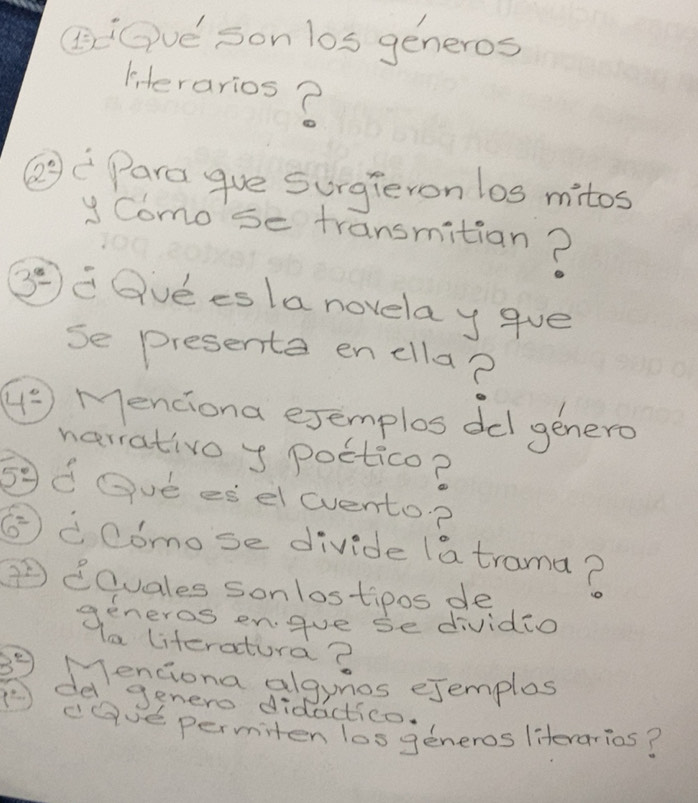 1º ¿Qué son los géneros
literarios?
2º ¿Para que surgieron los mitos
y Cómo se transmitian?
3º ¿Qué es la novela y que
se presenta en ella?
4º Menciona ejemplos del género
narrativo y poético?
5º ¿Qué es el cuento?
6º ¿Cómo se divide la trama?
7º ¿Cuales son los tipos de
géneros en que se dividio
la literatura?
Menciona algunos ejemplos
del genero didáctico.
¿Qué permiten los géneros literarios?